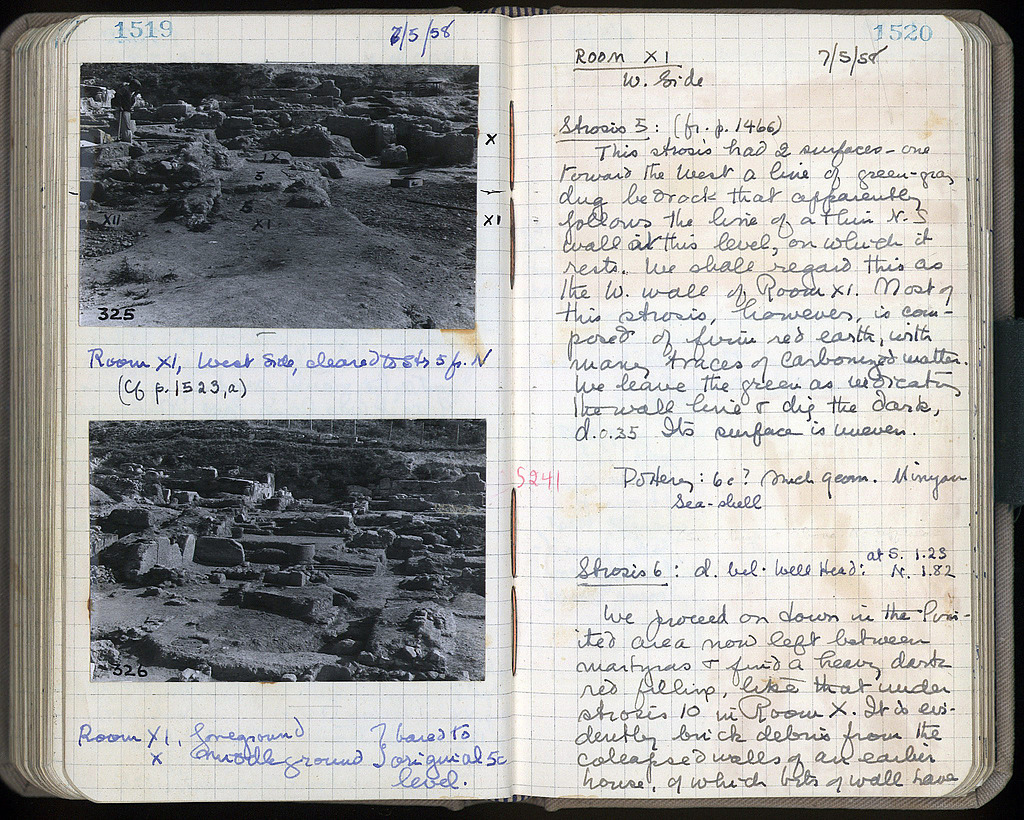 1519
7/5/58
X
XI
IX
5
5
XII
XI
325
Room XI, West Side, cleared to Str 5 fr. N
(Cf p. 1523, a)
326
Room XI, foreground } bared to
X middleground } original 5c
level.
1520
Room XI
7/5/58
W. Side
Strosis 5: (fr. p. 1466)
This strosis had 2 surfaces - one
toward the West a line of green-gray
dug bedrock that apparently
follows the line of a thin N.S
wall at this level, on which it
rests. We shall regard this as
the W. wall of Room XI. Most of
this strosis, however, is com-
posed of firm red earth, with
many traces of carbonized matter.
We leave the green as indicating
the wall line & dig the dark,
d. 0.35 Its surface is uneven.
S241
Pottery: 6c? much geom. Minyan
Sea-shell
Strosis 6: d. bel. Well Head: at S. 1.23
N. 1.82
We proceed on down in the lim-
ited area now left between
martyras & find a heavy dark
red filling, like that under
strosis 10 in Room X. It is evi-
dently brick debris from the
collapsed walls of an earlier
house, of which bits of wall have